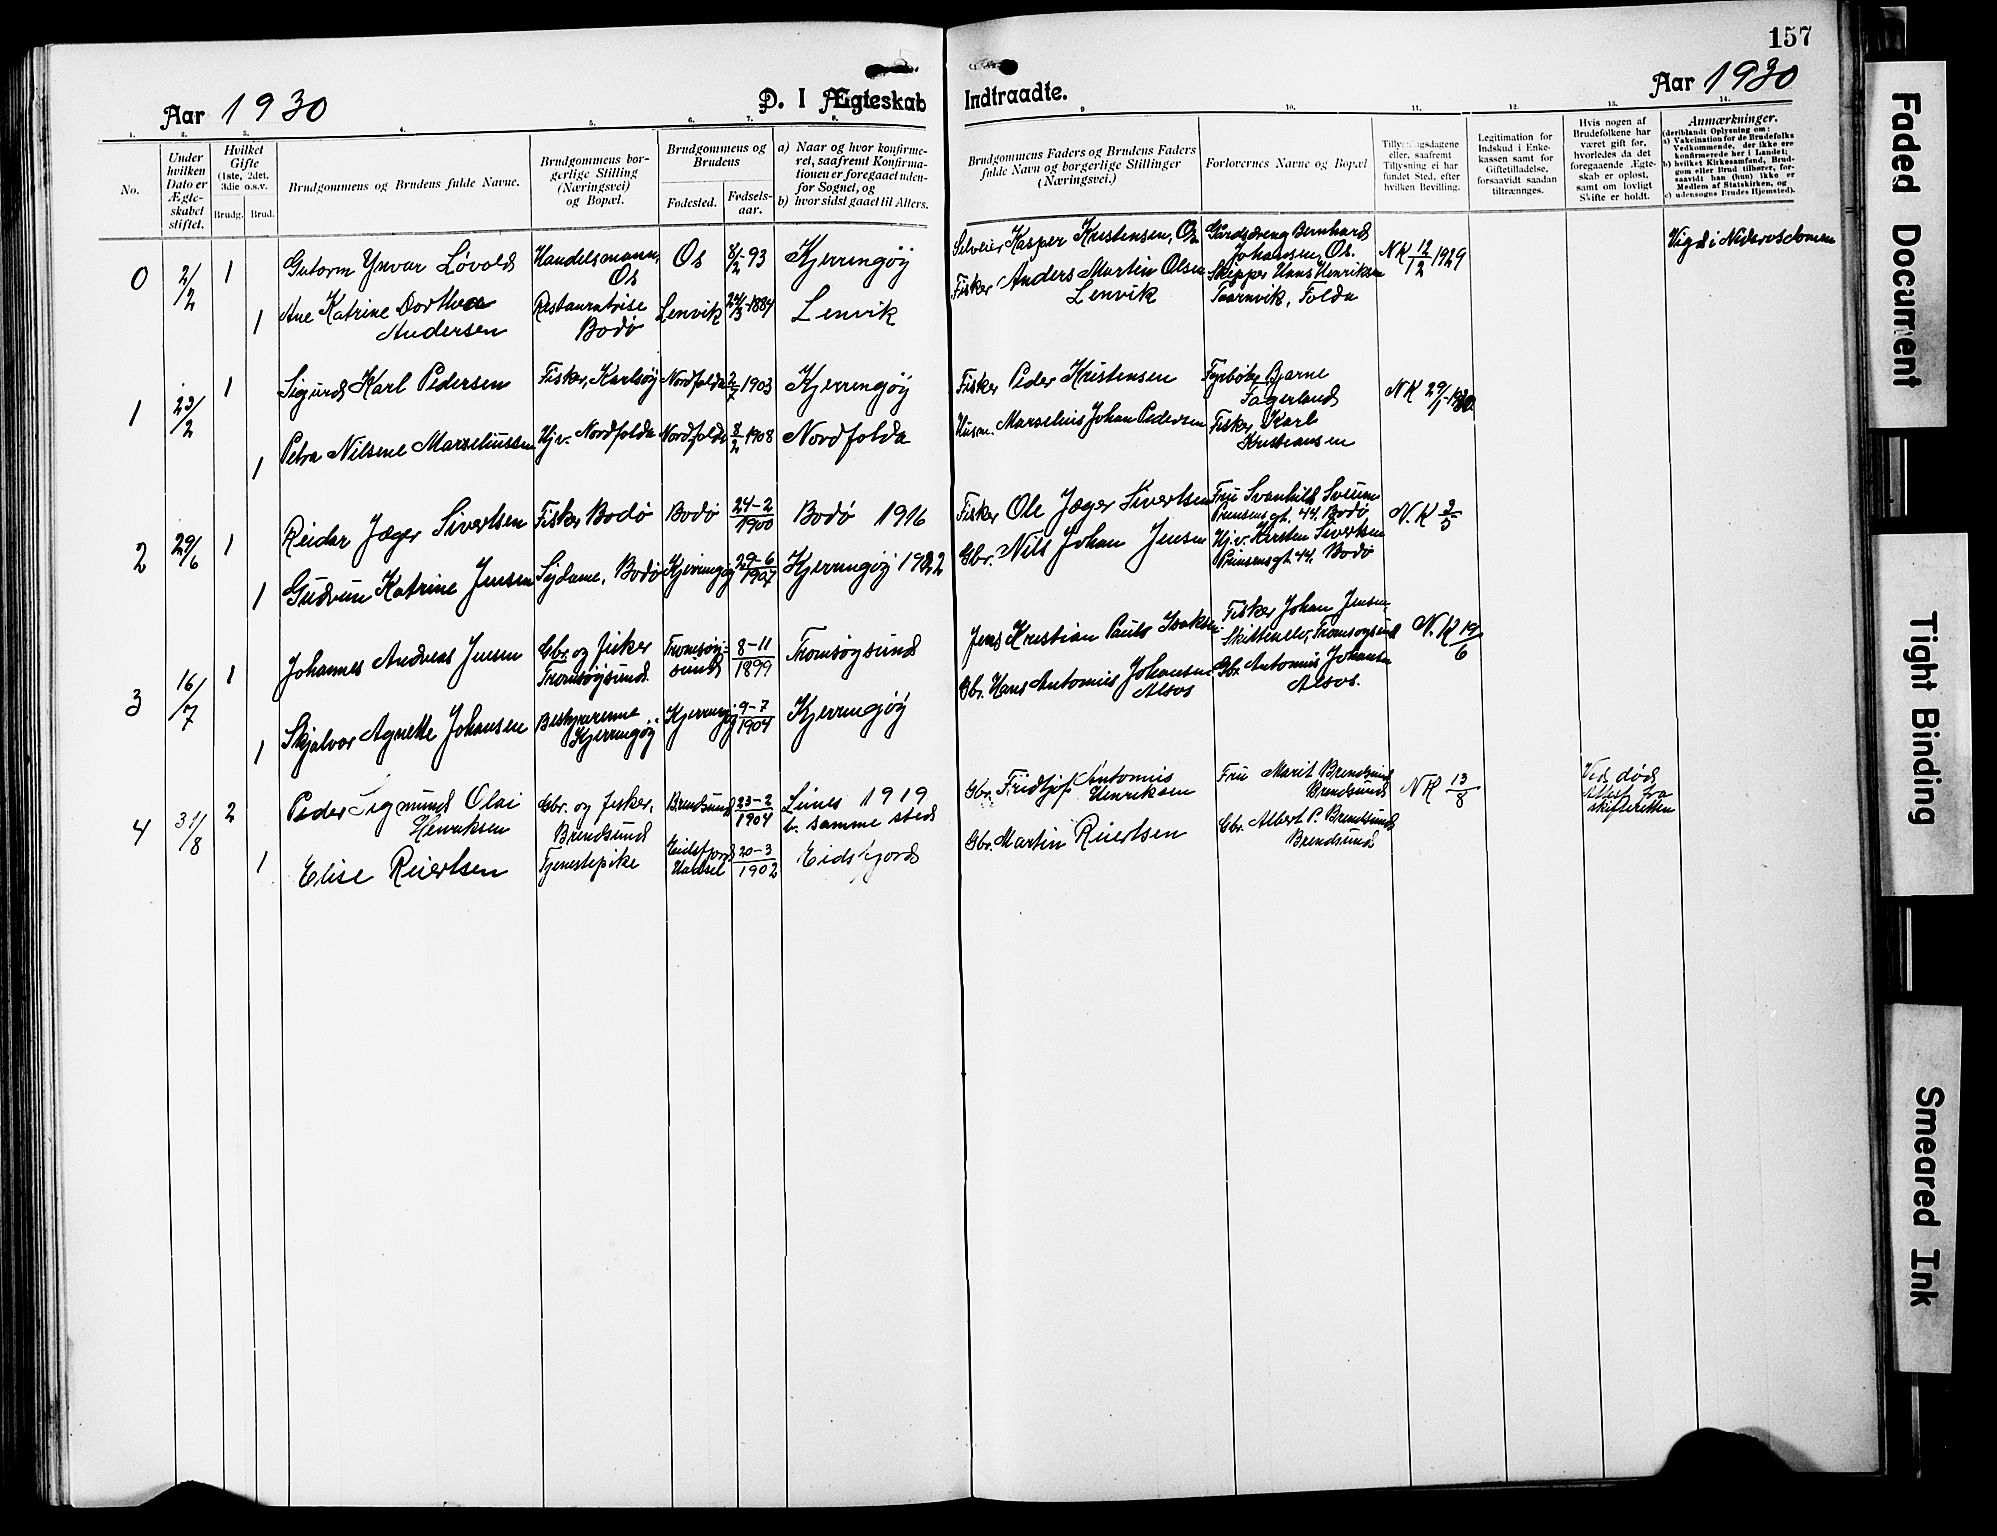 157
Aar 1930
D. I Ægteskab
Indtraadte.
Aar 1930
1. 2. 3. 4. 5. 6. 7. 8. 9. 10. 11. 12. 13. 14.
No.
Under
hvilken
Dato er
Ægte-
skabet
stiftet.
Hvilket
Gifte
(1ste, 2det,
3die o.s.v.
Brudg. Brud.
Brudgommens og Brudens fulde Navne.
Brudgommens bor-
gerlige Stilling
(Næringsvei)
og Bopæl.
Brudgommens og
Brudens
Fødested.
Fødsels-
aar.
a) Naar og hvor konfirme-
ret, saafremt Konfirma-
tionen er foregaaet uden-
for Sognet, og
b) hvor sidst gaaet til Alters.
Brudgommens Faders og Brudens Faders
fulde Navn og borgerlige Stillinger
(Næringsvei.)
Forlovernes Navne og Bopæl
Tillysningsdagene
eller, saafremt
Tillysning ei har
fundet Sted, efter
hvilken Bevilling.
Legitimation for
Indskud i Enke-
kassen samt for
Giftetilladelse,
forsaavidt saadan
tiltrænges.
Hvis nogen af
Brudefolkene har
været gift før,
hvorledes da det
foregaaende Ægte-
skab er opløst,
samt om lovligt
Skifte er holdt.
Anmærkninger.
(deriblandt Oplysning om:
a) Vakcination for de Brudefolks
Vedkommende, der ikke ere
konfirmerede her i Landet;
b) hvilket Kirkesamfund, Brud-
gom eller Brud tilhører, for-
saavidt han (hun) ikke er
Medlem af Statskirken, og
c) udensogns Brudes Hjemsted).
0 2/2 1 Gutorm Yvar Løvold Handelsmann, Os Os 8/2-93 Kjerringøy Kasper Kristensen, Os Gårdsdreng Bernhard Johansen, Os. NK 12/12 1929 Vigd i Nidarosdomen
1 Ane Katrine Dorthea Andersen Restauratrise Bodø Lenvik 24/3-1884 Lenvik Fisker Anders Martin Olsen Lenvik Skipper Hans Henriksen Taarnvik, Folda
1 23/2 1 Sigurd Karl Pedersen Fisker, Karlsøy Nordfolda 2/7 1903 Kjerringøy Fisker Peder Kristensen Fyrbøter Bjarne Fagerland NK 29/1-1930
1 Petra Nilsene Marseliussen Hj.v. Nordfolda Nordfolda 8/2 1908 Nordfolda Husm. Marselius Johan Pedersen Fisker Karl Kristiansen
2 29/6 1 Reidar Jæger Sivertsen Fisker Bodø Bodø 24-2 1900 Bodø 1916 Fisker Ole Jæger Sivertsen Fru Svanhild Sveum Prinsensgt. 44, Bodø N.K 3/5
1 Gudrun Katrine Jensen Sydame, Bodø Kjerringøy 29-6 1907 Kjerringøy 1922 Gbr. Nils Johan Jensen Hj.v. Kirsten Sivertsen Prinsensgt 44. Bodø
3 16/7 1 Johannes Andreas Jensen Gbr. og fisker Tromsøysund Tromsøysund 8-11 1899 Tromsøysund Jens Kristian Paulo Isaksen Fisker Johan Jensen, Skittenelv, Tromsøysund N.K 19/6
1 Skjalvor Agnethe Johansen Bestyrerinne Kjerringøy Kjerringøy 9-7 1904 Kjerringøy Gbr. Hans Antonius Johansen Alsos Gbr. Antonius Johansen Alsos.
4 31/8 2 Peder Sigmund Olai Henriksen Gbr. og fisker, Brendsund Brendsund 23-2 1904 Leines 1919 b. samme sted Gbr. Fridtjof Antonius Henriksen Fru Marit Brendsund Brendsund NK 13/8 Ved død Attest fra skifteretten
1 Elise Reiertsen Tjenestepike Eidsfjord Hadsel 20-3 1902 Eidsfjord Gbr. Martin Reiertsen Gbr. Albert P. Brendsund Brendsund
Faded Document
Tight Binding
Smeared Ink